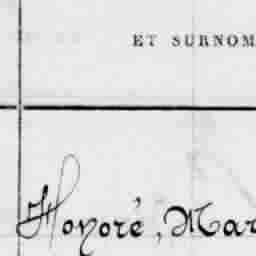 ET SURNOM
Honoré, Mar